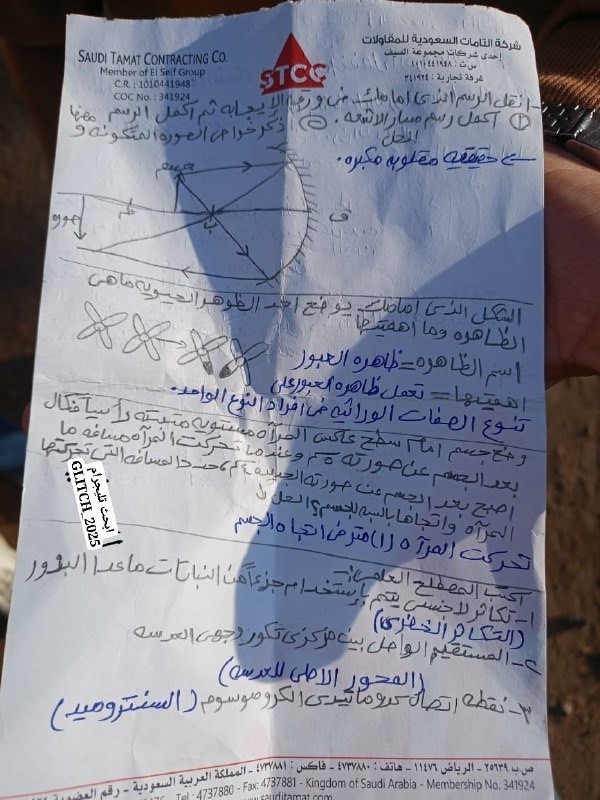 SAUDI TAMAT CONTRACTING CO.
Member of El Seif Group
C.R : 1010441948
COC No. : 341924
STCC
شركة التامات السعودية للمقاولات
إحدى شركات مجموعة السيف
س.ت : ١٠١٠٤٤١٩٤٨
غرفة تجارية : ٣٤١٩٢٤
انقل الرسم الذى امامك فى ورقه الإيجابه ثم اكمل الرسم
① اكمل رسم مسار الاشعه. ② اذكر خواص الصوره المتكونه
الحل
حقيقيه مقلوبه مكبره.
جسم
صوره
ق
الشكل الذى امامك يوضح احد الظوهر الحيويه ماهى
الظاهره وما اهميتها
اسم الظاهره = ظاهره العبور
اهميتها = تعمل ظاهره العبور على
تنوع الصفات الوراثيه فى افراد النوع الواحد.
وضع جسم امام سطح عاكس المرآه مستويه مثبته رأسيا فكان
بعد الجسم عن صورته ٥م وعندما تحركت المرآه مسافه ما
اصبح بعد الجسم عن صورته الجديده ٤م حدد المسافه التى تحركتها
المرآه واتجاها بالنسبه للجسم؟ الحل
تحركت المرآه (١) متر فى اتجاه الجسم
ابحث تليجرام
GLITCH_2025
اكتب المصطلح العلمى:-
١- تكاثر لاجنسى يتم بإستخدام جزءاً من النباتات ماعدا البذور
(التكاثر الخضرى)
٢- المستقيم الواصل بين مركزى تكور وجهى العدسه
(المحور الاصلى للعدسه)
٣- نقطه اتصال كروماتيدى الكروموسوم (السنترومير)
ص.ب ٢٥٦٣٩ - الرياض ١١٤٧٦ - هاتف : ٤٧٣٧٨٨٠ - فاكس : ٤٧٣٧٨٨١ - المملكة العربية السعودية - رقم العضوية
Tel : 4737880 - Fax: 4737881 - Kingdom of Saudi Arabia - Membership No. 341
www.sauditamat.com